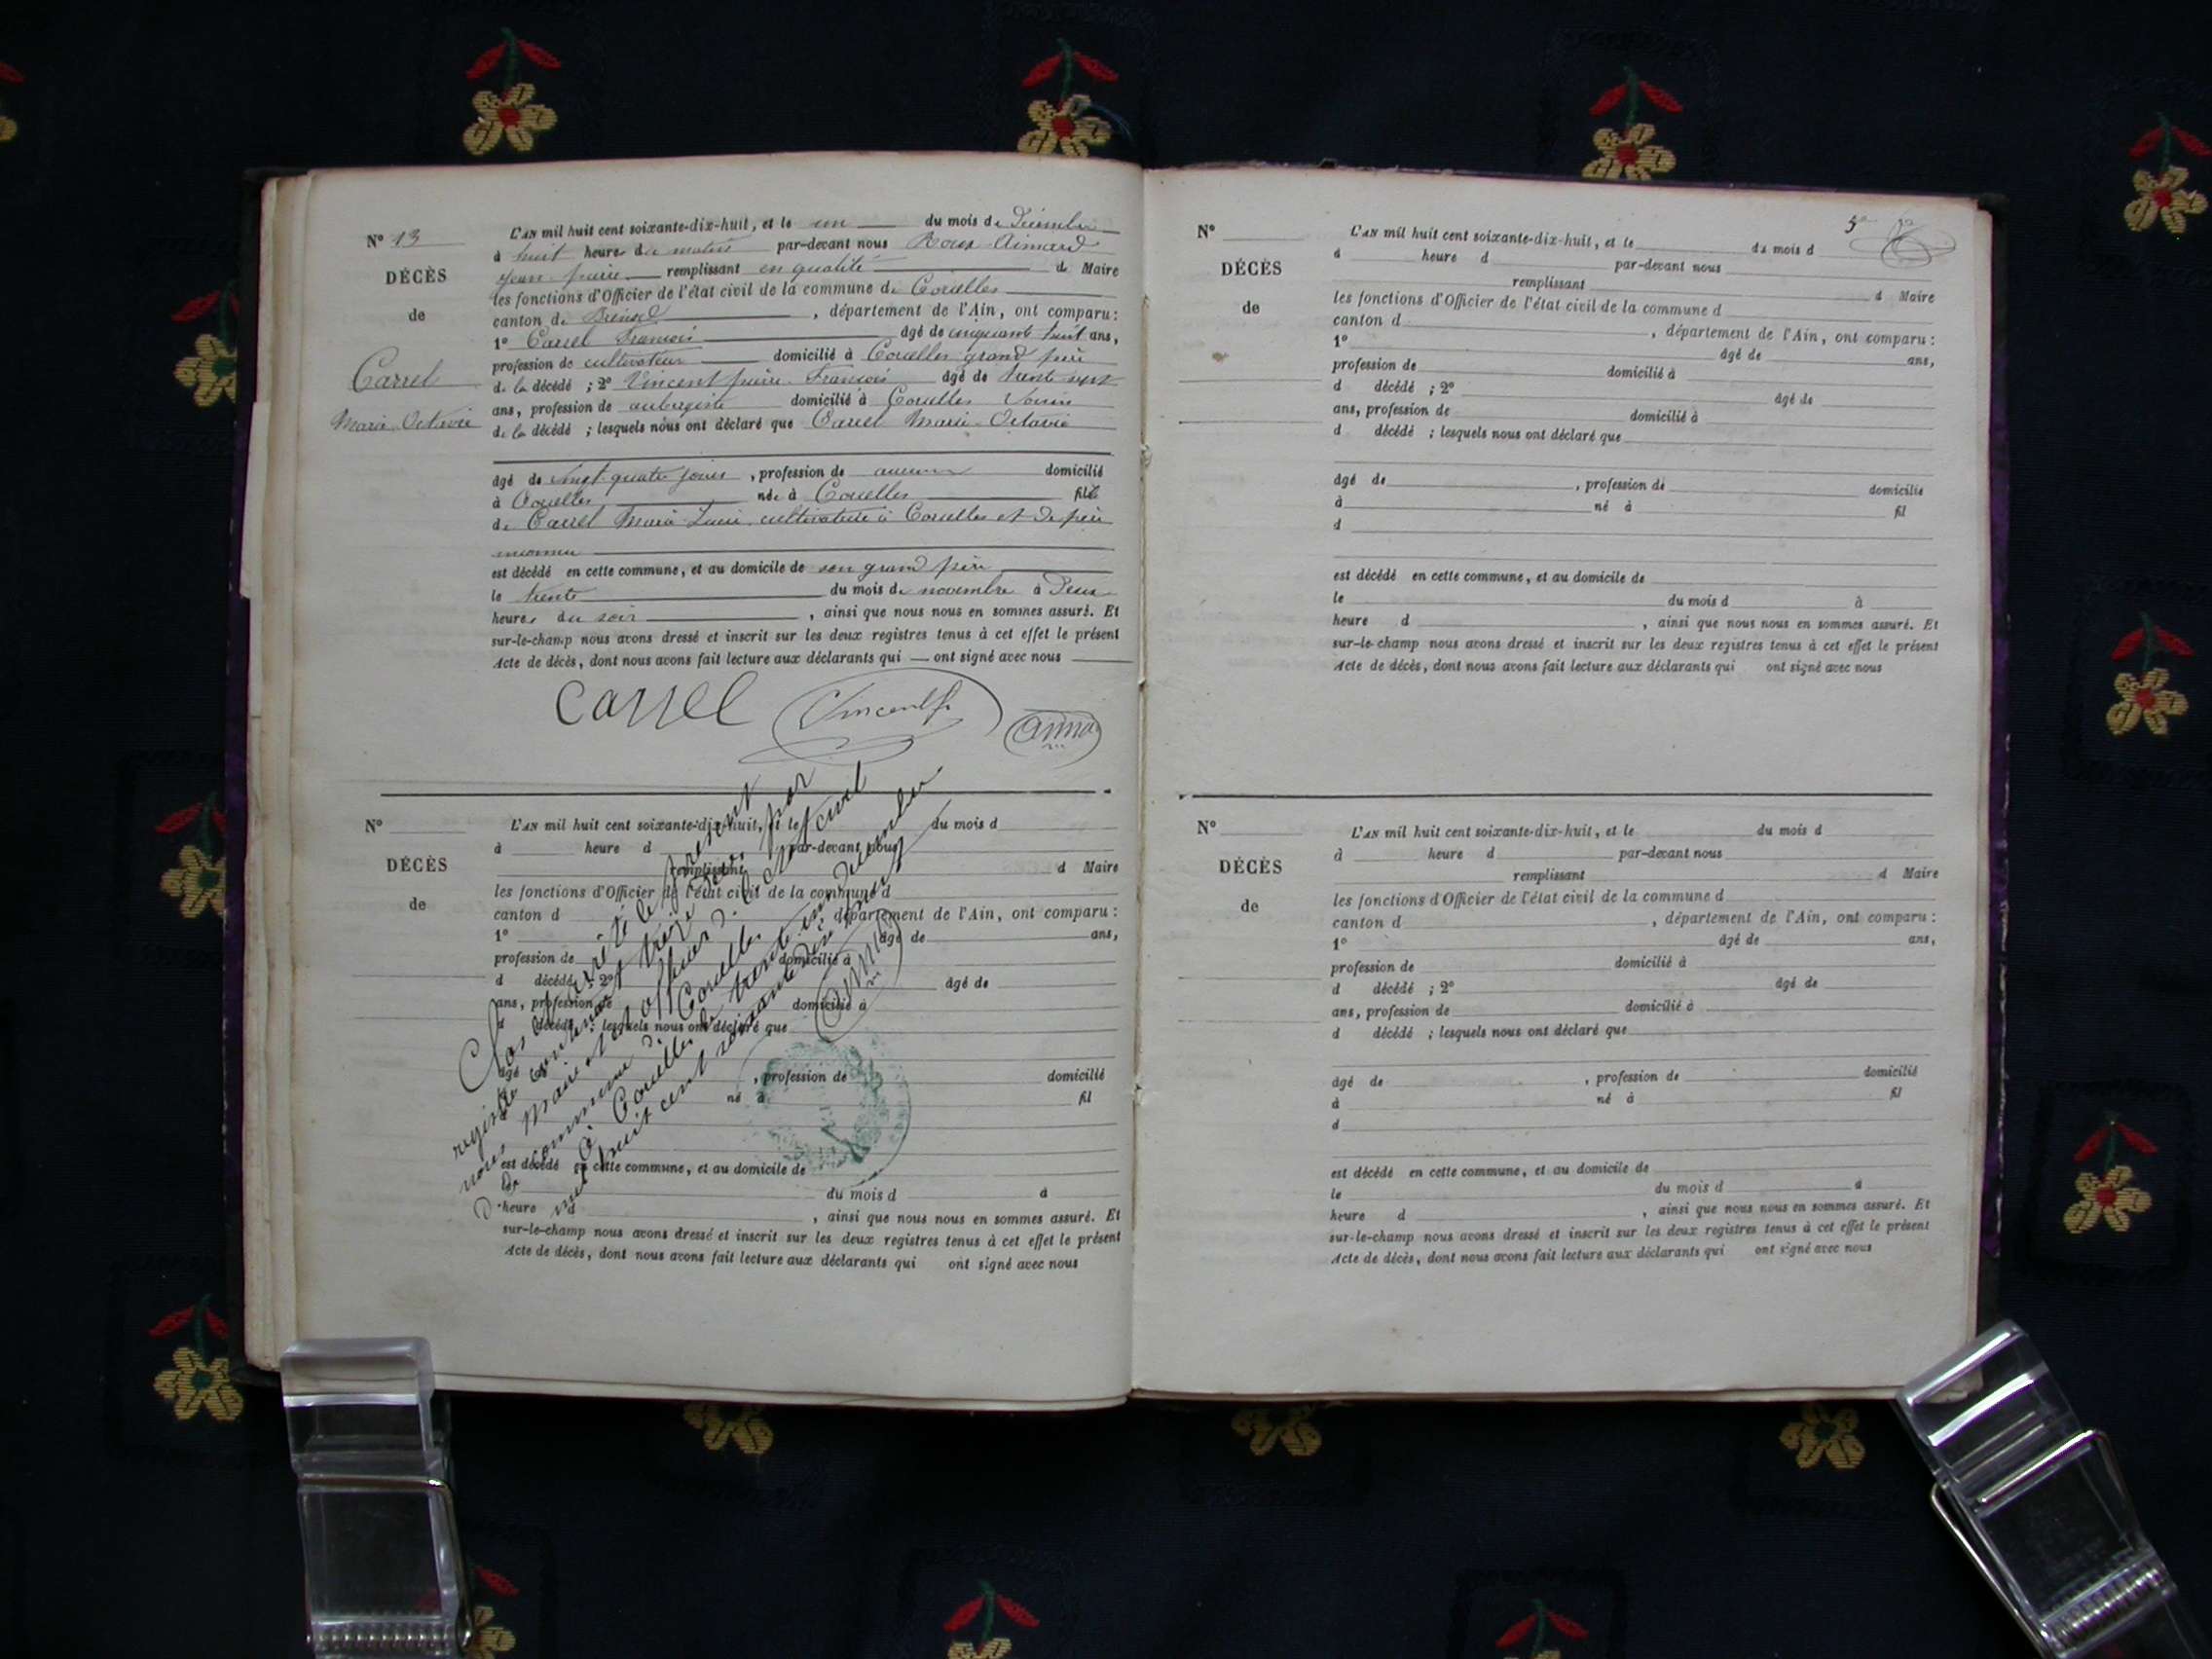 N° 13
DÉCÈS
de
Carrel
Marie Octavie
L'AN mil huit cent soixante-dix-huit, et le un du mois de Décembre
à huit heures du matin par-devant nous Roux Aimard
Jean-pierre remplissant en qualité de Maire
les fonctions d'Officier de l'état civil de la commune de Corcelles
canton de Brénod, département de l'Ain, ont comparu :
1° Carrel François âgé de cinquante huit ans,
profession de cultivateur domicilié à Corcelles grand père
de la décédé ; 2° Vincent pierre François âgé de trente sept
ans, profession de aubergiste domicilié à Corcelles voisin
de la décédé ; lesquels nous ont déclaré que Carrel Marie Octavie
âgé de vingt quatre jours, profession de aucune domicilié
à Corcelles née à Corcelles fille
de Carrel Marie Lucie cultivatrice à Corcelles et de père
inconnu
est décédé en cette commune, et au domicile de son grand père
le trente du mois de novembre à Deux
heures du soir, ainsi que nous nous en sommes assuré. Et
sur-le-champ nous avons dressé et inscrit sur les deux registres tenus à cet effet le présent
Acte de décès, dont nous avons fait lecture aux déclarants qui — ont signé avec nous
Carrel Vincent
N°
DÉCÈS
de
L'AN mil huit cent soixante-dix-huit, et le du mois d
à heure d par-devant nous
remplissant d Maire
les fonctions d'Officier de l'état civil de la commune d
canton d , département de l'Ain, ont comparu :
1° âgé de ans,
profession de domicilié à
d décédé ; 2° âgé de
ans, profession de domicilié à
d décédé ; lesquels nous ont déclaré que
âgé de , profession de domicilié
à né à fil
d
est décédé en cette commune, et au domicile de
le du mois d à
heure d , ainsi que nous nous en sommes assuré. Et
sur-le-champ nous avons dressé et inscrit sur les deux registres tenus à cet effet le présent
Acte de décès, dont nous avons fait lecture aux déclarants qui ont signé avec nous
Clos et arrêté le présent
registre contenant treize par
nous Maire et officier de l'état civil
de la commune de Corcelles
à Corcelles le trente un décembre
mil huit cent soixante dix huit
5
N°
DÉCÈS
de
L'AN mil huit cent soixante-dix-huit, et le du mois d
à heure d par-devant nous
remplissant d Maire
les fonctions d'Officier de l'état civil de la commune d
canton d , département de l'Ain, ont comparu :
1° âgé de ans,
profession de domicilié à
d décédé ; 2° âgé de
ans, profession de domicilié à
d décédé ; lesquels nous ont déclaré que
âgé de , profession de domicilié
à né à fil
d
est décédé en cette commune, et au domicile de
le du mois d à
heure d , ainsi que nous nous en sommes assuré. Et
sur-le-champ nous avons dressé et inscrit sur les deux registres tenus à cet effet le présent
Acte de décès, dont nous avons fait lecture aux déclarants qui ont signé avec nous
N°
DÉCÈS
de
L'AN mil huit cent soixante-dix-huit, et le du mois d
à heure d par-devant nous
remplissant d Maire
les fonctions d'Officier de l'état civil de la commune d
canton d , département de l'Ain, ont comparu :
1° âgé de ans,
profession de domicilié à
d décédé ; 2° âgé de
ans, profession de domicilié à
d décédé ; lesquels nous ont déclaré que
âgé de , profession de domicilié
à né à fil
d
est décédé en cette commune, et au domicile de
le du mois d à
heure d , ainsi que nous nous en sommes assuré. Et
sur-le-champ nous avons dressé et inscrit sur les deux registres tenus à cet effet le présent
Acte de décès, dont nous avons fait lecture aux déclarants qui ont signé avec nous